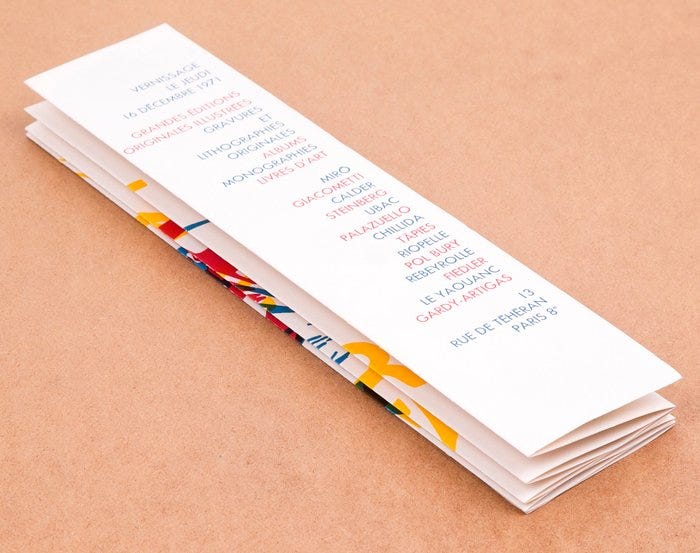 VERNISSAGE
LE JEUDI
16 DÉCEMBRE 1971
GRANDES ÉDITIONS
ORIGINALES ILLUSTRÉES
GRAVURES
ET
LITHOGRAPHIES
ORIGINALES
ALBUMS
MONOGRAPHIES
LIVRES D'ART
MIRÓ
GIACOMETTI
CALDER
STEINBERG
UBAC
PALAZUELLO
CHILLIDA
TÀPIES
RIOPELLE
POL BURY
REBEYROLLE
FIEDLER
LE YAOUANC
GARDY-ARTIGAS
13
RUE DE TÉHÉRAN
PARIS 8e